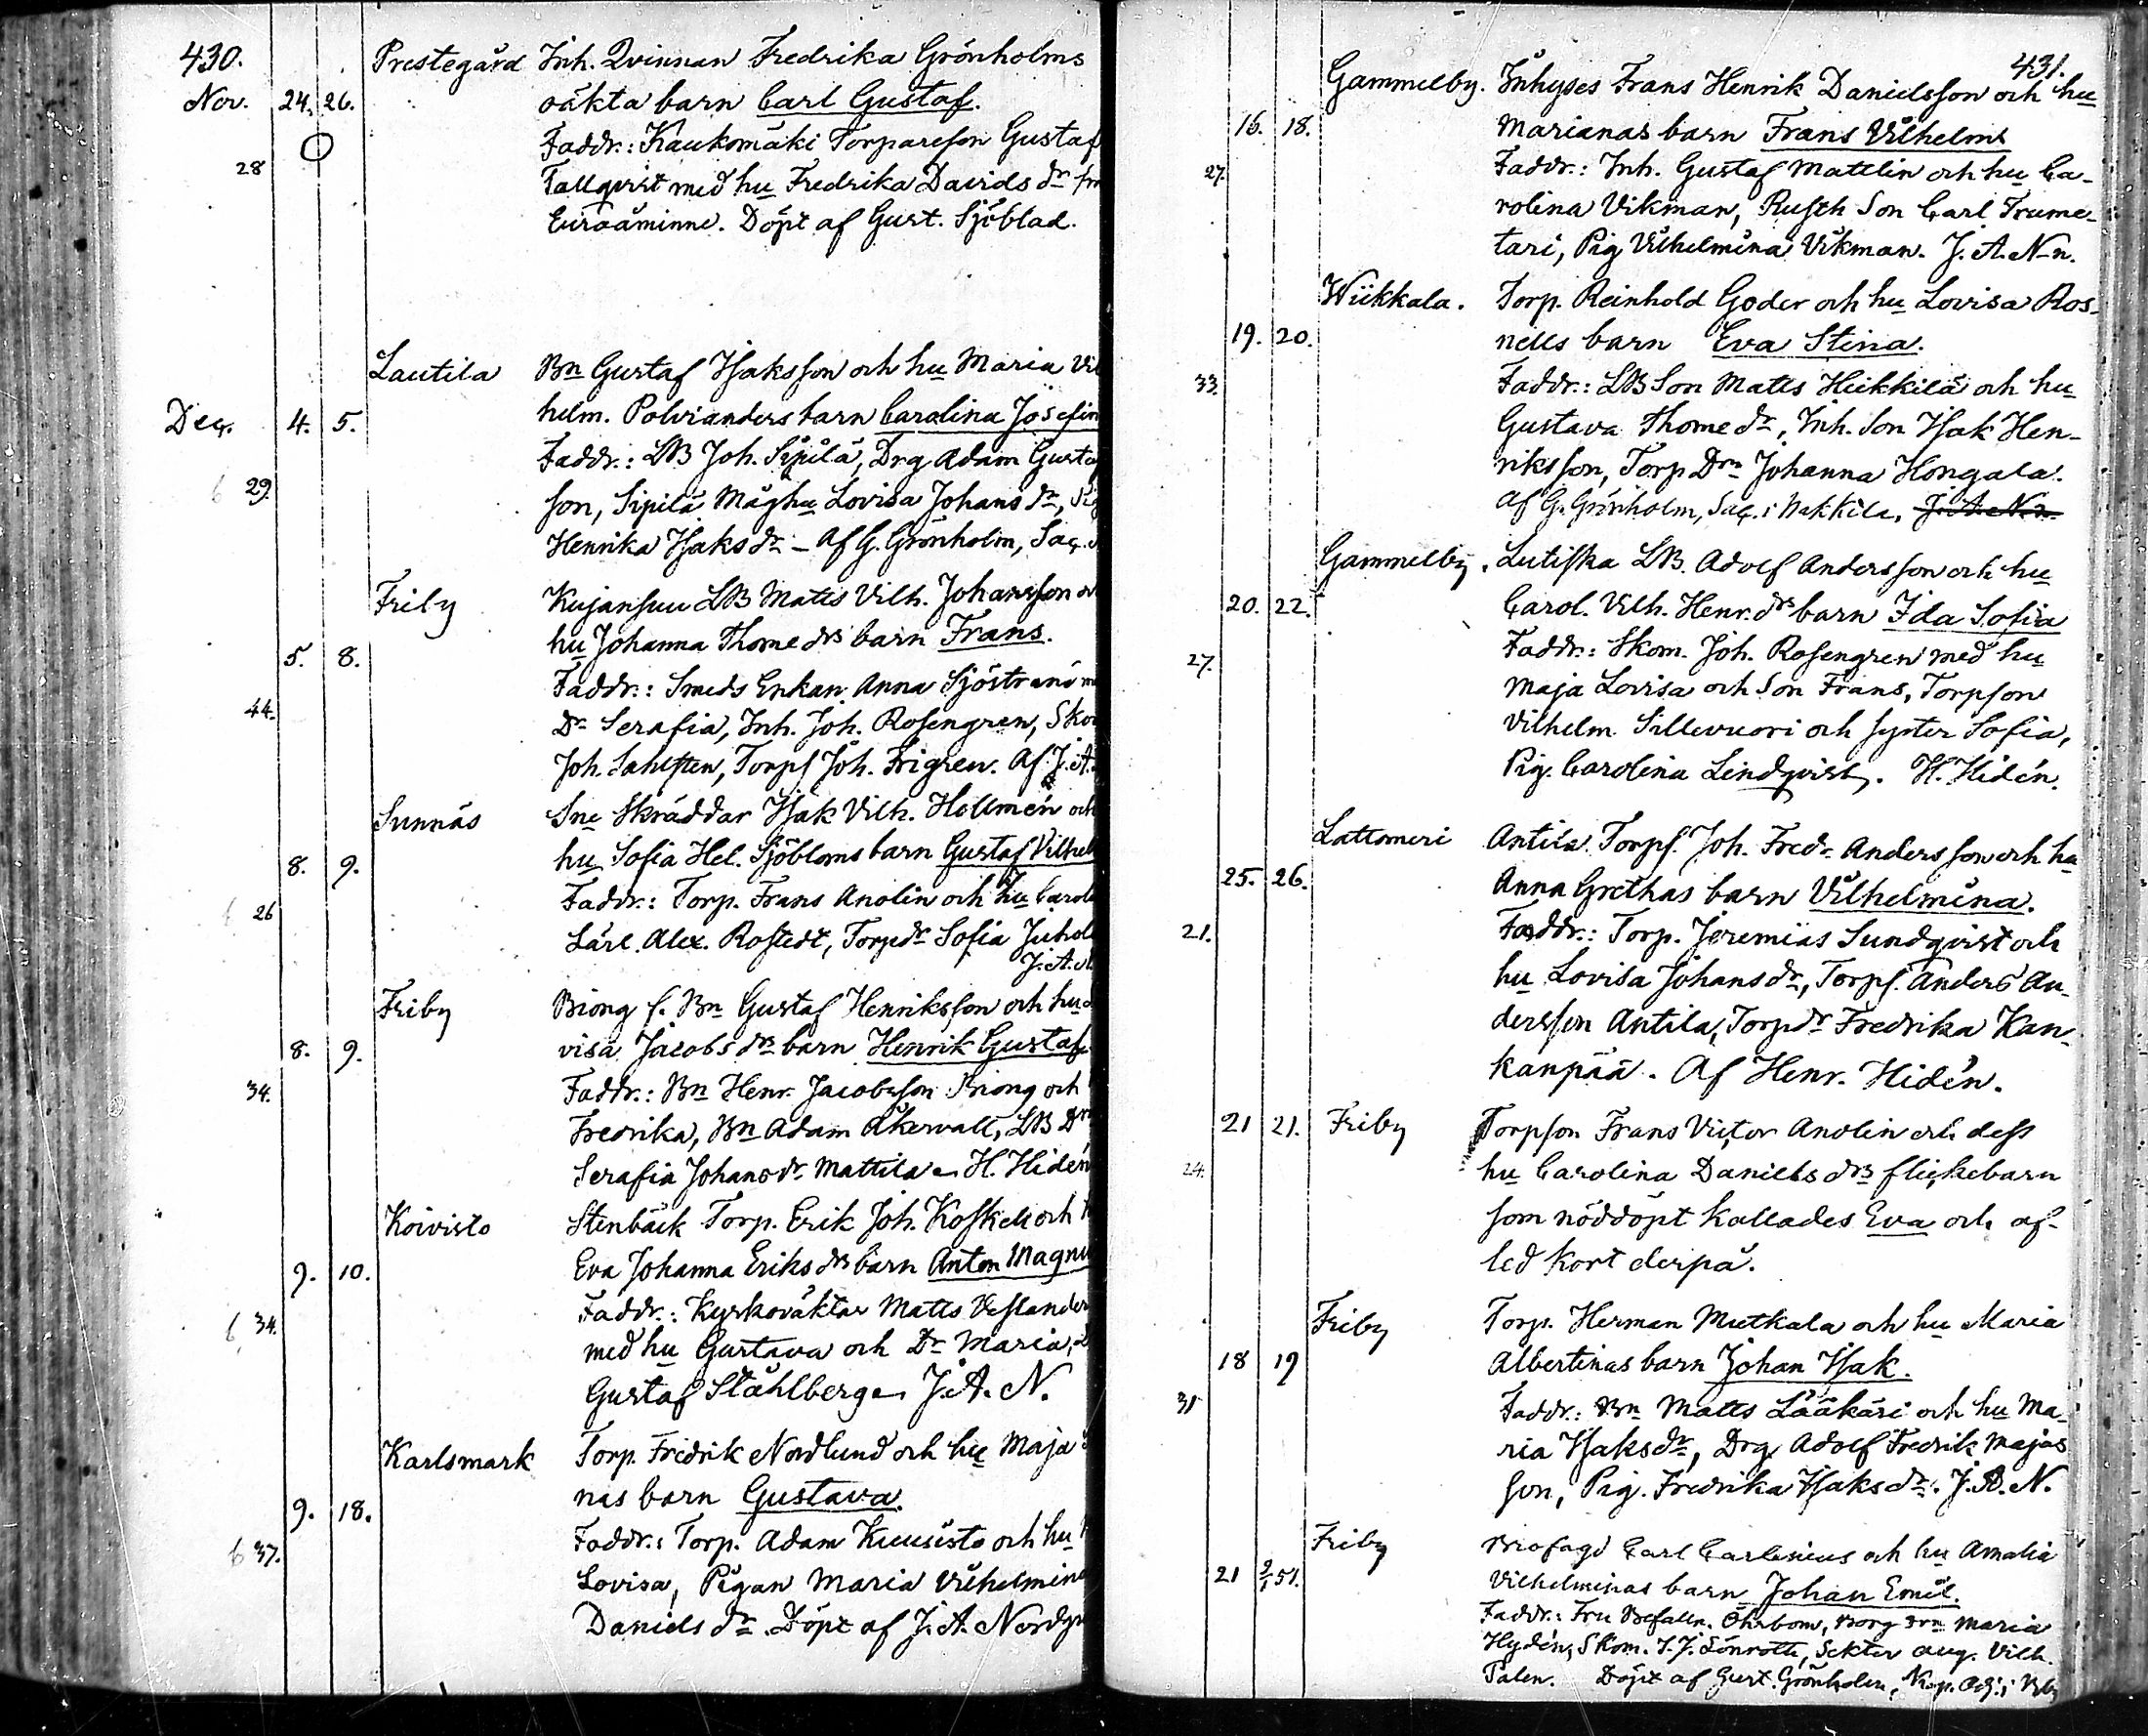 430.
Prestegård Inh. Qvinnan Fredrika Grönholms
Nov. 24. 26. oäkta barn Carl Gustaf.
Faddr.: Kaukomäki Torpareson Gustaf
28 Tallqvist med hu Fredrika Davids dr
Euraåminne. Döpt af Gust. Sjöblad.
Lautila Bn Gustaf Isaksson och hu Maria Vil
Dec. 4. 5. helm. Polvianders barn Carolina Josefin
Faddr.: LB Joh. Sipilä, Drg Adam Gustaf
6 29. son, Sipilä Måghu Lovisa Johans dr,
Henrika Isaks dr – Af G. Grönholm, Sac.
Friby Kujansuu LB Matts Vilh. Johansson och
5. 8. hu Johanna Thome drs barn Frans.
Faddr.: Smeds Enkan Anna Sjöstrand
44. Dr Serafia, Inh. Joh. Rosengren, Skom
Joh. Sahlsten, Torps Joh. Frigren. Af J. A.
Sunnäs Sne Skräddar Isak Vilh. Hellmén och
8. 9. hu Sofia Hel. Sjöbloms barn Gustaf Vilhel
6 26 Faddr.: Torp. Frans Anolin och hu Carol
Lärl. Alex. Rostedt, Torpdr Sofia Juhol
J. A.
Friby Biong f. Bn Gustaf Henriksson och hu
8. 9. visa Jacobs drs barn Henrik Gustaf
34. Faddr.: Bn Henr. Jacobsson Biong och
Fredrika, Bn Adam Åkervall, LB Dr
Serafia Johans dr Mattila. H. Hidén
Koivisto Stenbäck Torp. Erik Joh. Koskeli och
9. 10. Eva Johanna Eriks drs barn Anton Magnu
6 34. Faddr.: Kyrkoväktar Matts Veslander
med hu Gustava och Dr Maria,
Gustaf Ståhlberg. J. A. N.
Karlsmark Torp. Fredrik Nordlund och hu Maja
9. 18. nas barn Gustava.
6 37. Faddr.: Torp. Adam Kuusisto och hu
Lovisa, Pigan Maria Vilhelmina
Daniels dr. Döpt af J. A. Nordgr
431.
Gammelby. Inhyses Frans Henrik Danielsson och hu
16. 18. Marianas barn Frans Vilhelm
27. Faddr.: Inh. Gustaf Mattlin och hu Ca-
rolina Vikman, Rusth Son Carl Trume-
tari, Pig Vilhelmina Vikman. J. A. N-n.
Wiikkala. Torp. Reinhold Goder och hu Lovisa Ros-
19. 20. nells barn Eva Stina.
33. Faddr.: LB Son Matts Heikkilä och hu
Gustava Thome dr, Inh. Son Isak Hen-
riksson, Torp Drn Johanna Hongala.
Af G. Grönholm, Sac. i Nakkila. J. A. N-n.
Gammelby. Lutiska LB. Adolf Andersson och hu
20. 22. Carol. Vilh. Henr. drs barn Ida Sofia
27. Faddr.: Skom. Joh. Rosengren med hu
Maja Lovisa och Son Frans, Torpson
Vilhelm Sillevuori och syster Sofia,
Pig. Carolina Lindqvist. H. Hidén.
Lattomeri Antila Torps. Joh. Fredr Andersson och hu
25. 26. Anna Grethas barn Vilhelmina.
21. Faddr.: Torp. Jeremias Sundqvist och
hu Lovisa Johans dr, Torps. Anders An-
dersson Antila, Torpdr Fredrika Kan-
kanpää. Af Henr. Hidén.
21 21. Friby Torpson Frans Victor Anolin och dess
24. hu Carolina Daniels drs flickebarn
som nöddöpt kallades Eva och af-
led kort derpå.
Friby Torp. Herman Mutkala och hu Maria
18 19 Albertinas barn Johan Isak.
31 Faddr.: Bn Matts Lääkäri och hu Ma-
ria Isaks dr, Drg Adolf Fredrik Majas
son, Pig. Fredrika Isaks dr. J. A. N.
Friby Brofogd Carl Carlenius och hu Amalia
21 2/1 51. Vilhelminas barn Johan Emil.
Faddr.: Fru Befalln. Öhrbom, Borg Drn Maria
Hydén, Skom. J. J. Lönroth, Sekter Aug. Vilh.
Palen. Döpt af Gust. Grönholm, Kap. Adj. i